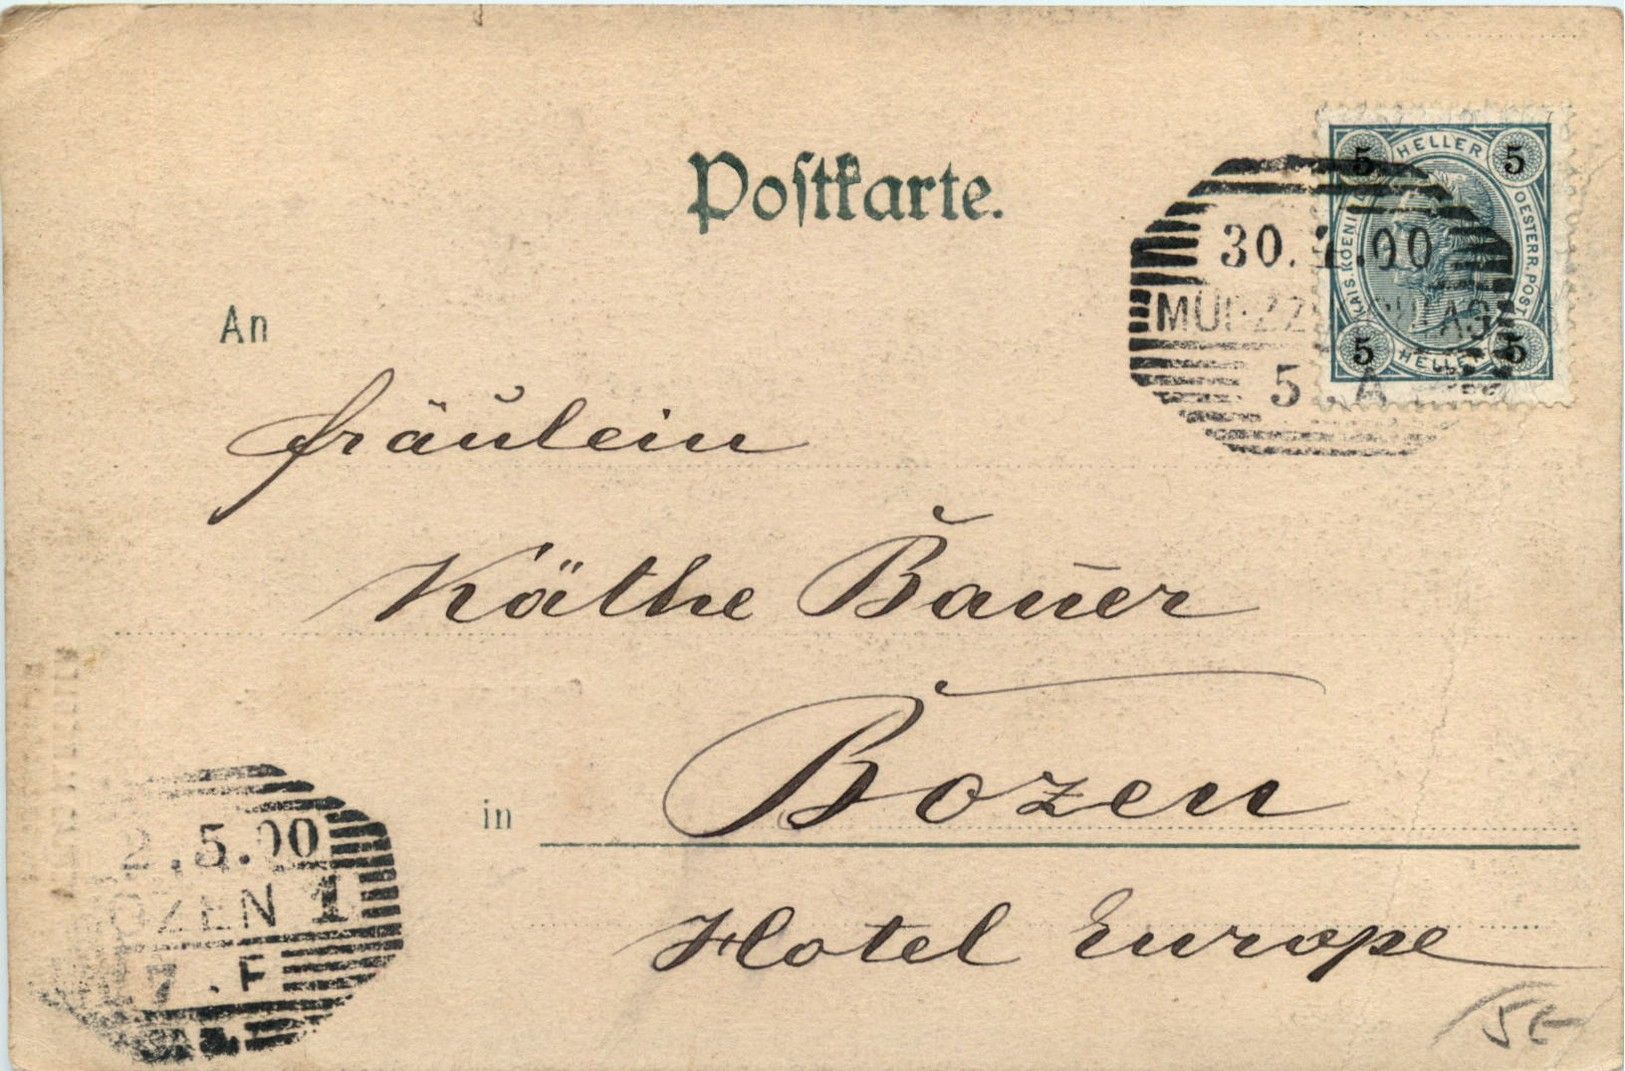 Postkarte.
HELLER
5 5
KAIS. KOENIGL. OESTERR. POST
5 5
HELLER
30. .00
MÜRZZUSCHLAG
5 . A
An
Fräulein
Käthe Bauer
in Bozen
Hotel Europe
2.5.00
BOZEN 1
7 . F
5€